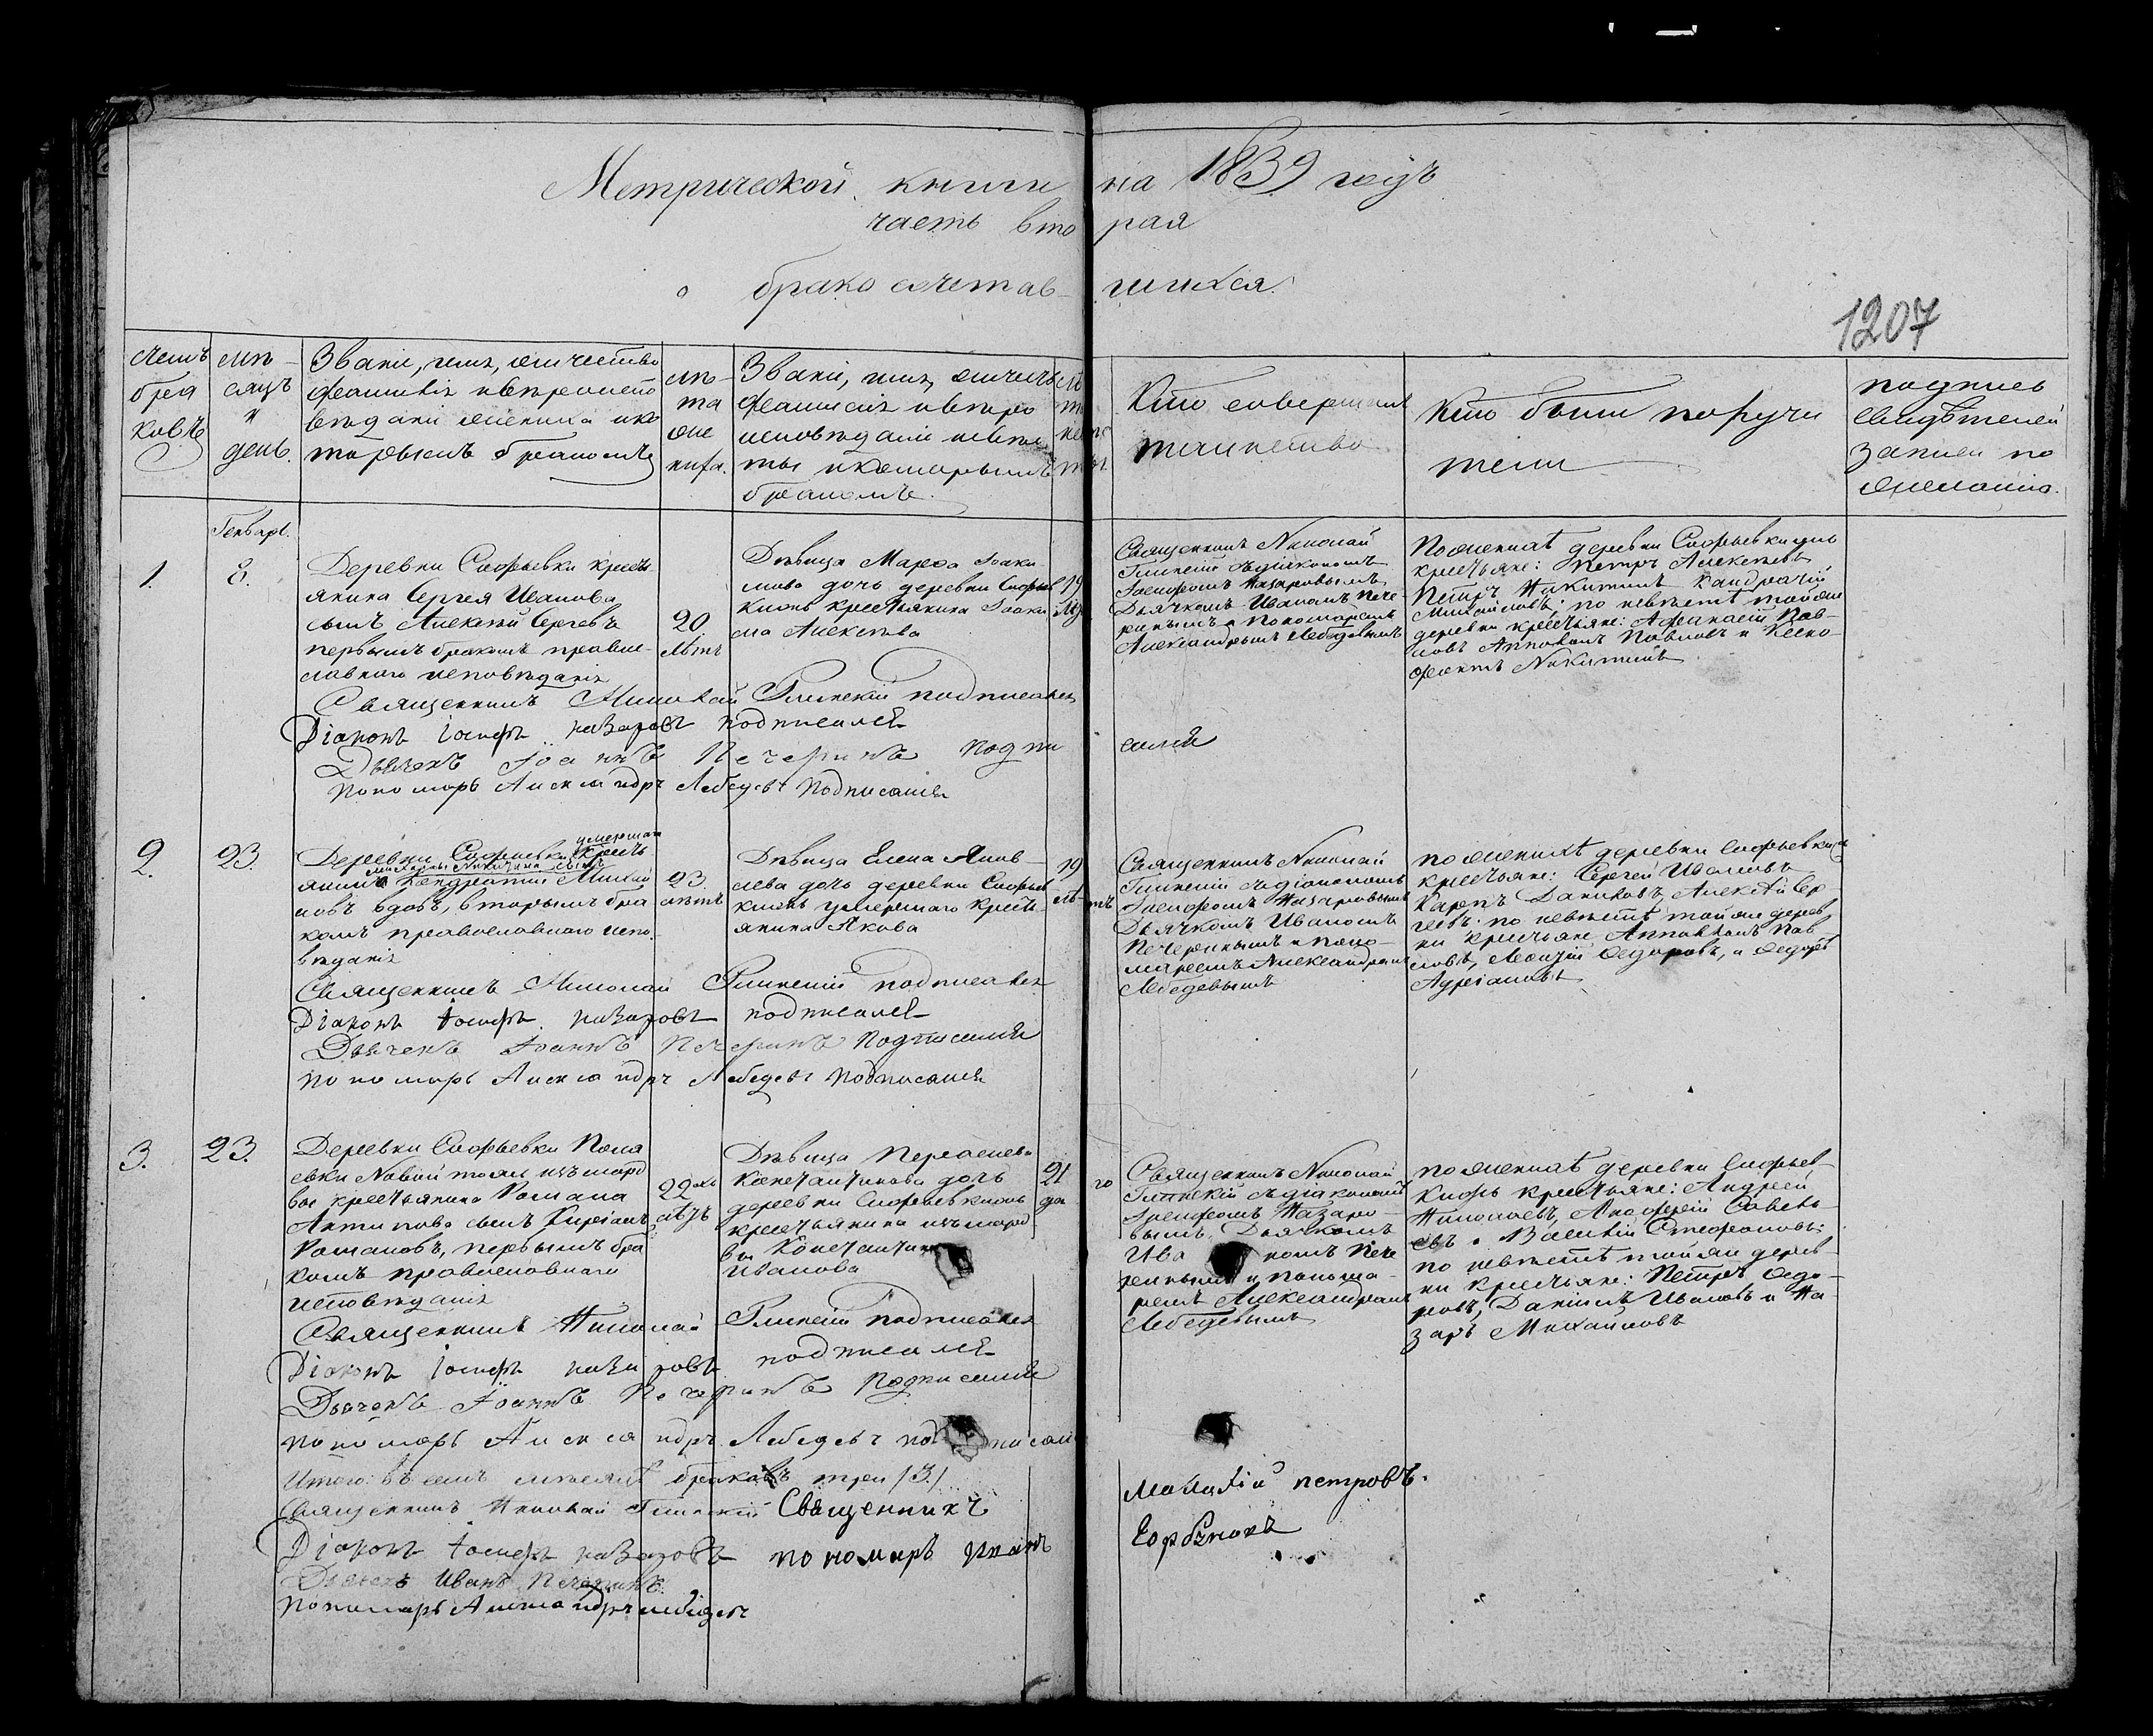 Метрической книги на 1839 годъ
часть вторая
о бракосочетавшихся
1207
счетъ
бра
ковъ
мѣ-
сяцъ
и
день.
Званіе, имя, отчество
фамилія и вѣроиспо
вѣданіе жениха и ко
торымъ бракомъ
лѣ-
та
же
ниха.
Званіе, имя, отчеств
фамилія и вѣро
исповѣданіе невѣс
ты и которымъ
бракомъ.
Кто совершалъ
таинство
Кто были поручи
тели
подпись
свидѣтелей
записи по
желанію.
Генварь.
1.
8.
Деревни Софьевки кресть
янина Сергея Иванова
сынъ Алексѣй Сергевъ
первымъ бракомъ правос-
лавнаго исповѣданія
20
лѣтъ
Дѣвица Марфа Іоаки
мова дочь деревни Софьев
кионъ крестьянина Іоаки
ма Алексѣева
19
Священникъ Николай
Глинскій съ діакономъ
Іосифомъ Назаровымъ
Дьячкомъ Иваномъ Пече-
ринымъ и Пономаремъ
Александромъ Лебедевымъ
По женихѣ деревни Софьевки
крестьяне: Петръ Алексѣевъ
Петръ Никитинъ Кандратій
Михайловъ; по невѣстѣ той же
деревни крестьяне: Афанасій Пав-
ловъ Никитинъ
Священникъ Николай Глинскій подписался
Діаконъ Іосифъ назаровъ подписался
Дьячекъ Іоаннъ Печеринъ подпи сался
Пономарь Александръ Лебедевъ Подписался
2.
23.
умершаго
Деревни Софьевки кресть
янинъ Кандратій Михай
ловъ вдовъ, вторымъ бра
комъ православнаго испо-
вѣданія
23.
лѣтъ
Дѣвица Елена Яков-
лева дочь деревни Софьев
кионъ умершаго кресть-
янина Якова
19
лѣтъ
Священникъ Николай
Глинскій съ діакономъ
Іосифомъ Назаровымъ
Дьячкомъ Иваномъ
Печеринымъ и поно-
маремъ Александромъ
Лебедевымъ
по женихѣ деревни Софьевки
крестьяне: Сергей Ивановъ
Карпъ Даниловъ, Алексѣй Сер-
гевъ; по невѣстѣ той же дерев
ни крестьяне Пав-
ловъ, Федоровъ, и Федоръ
Адріановъ
Священникъ Николай Глинскій подписался
Діаконъ Іосифъ назаровъ подписался
Дьячекъ Іоаннъ Печеринъ Подписался
Пономарь Александръ Лебедевъ Подписался
3.
23.
Деревни Софьевки
Новой тожъ изъ морд
вы крестьянина Романа
Антипова сынъ Киріанъ
Романовъ, первымъ бра
комъ православнаго
исповѣданія
22хъ
лѣтъ
Дѣвица
Константинова дочь
деревни Софьевкионъ
крестьянина изъ морд
вы Константина
Иванова
21
го
да
Священникъ Николай
Глинскій съ діакономъ
Іосифомъ Назаро-
вымъ, Дьячкомъ
Ива номъ Пече
ринымъ и понома-
ремъ Александромъ
Лебедевымъ
по женихѣ деревни Софьев-
кионъ крестьяне: Андрей
Николаевъ, Савель-
евъ и Василій Стефановъ;
по невѣстѣ той же дерев
ни крестьяне: Петръ Федо-
ровъ, Даніилъ Ивановъ и На-
заръ Михайловъ
Священникъ Николай Глинскій подписался
Діаконъ Іосифъ назаровъ подписался
Дьячекъ Іоаннъ Печеринъ Подписался
Пономарь Александръ Лебедевъ подписался
Итого: въ семъ мѣсяцѣ браковъ три /3./
Священникъ Николай Глинскій Священникъ петровъ.
Діаконъ Іосифъ назаровъ пономарь иванъ Горбуновъ
Дьячекъ Иванъ Печеринъ.
Пономарь Александръ лебедевъ